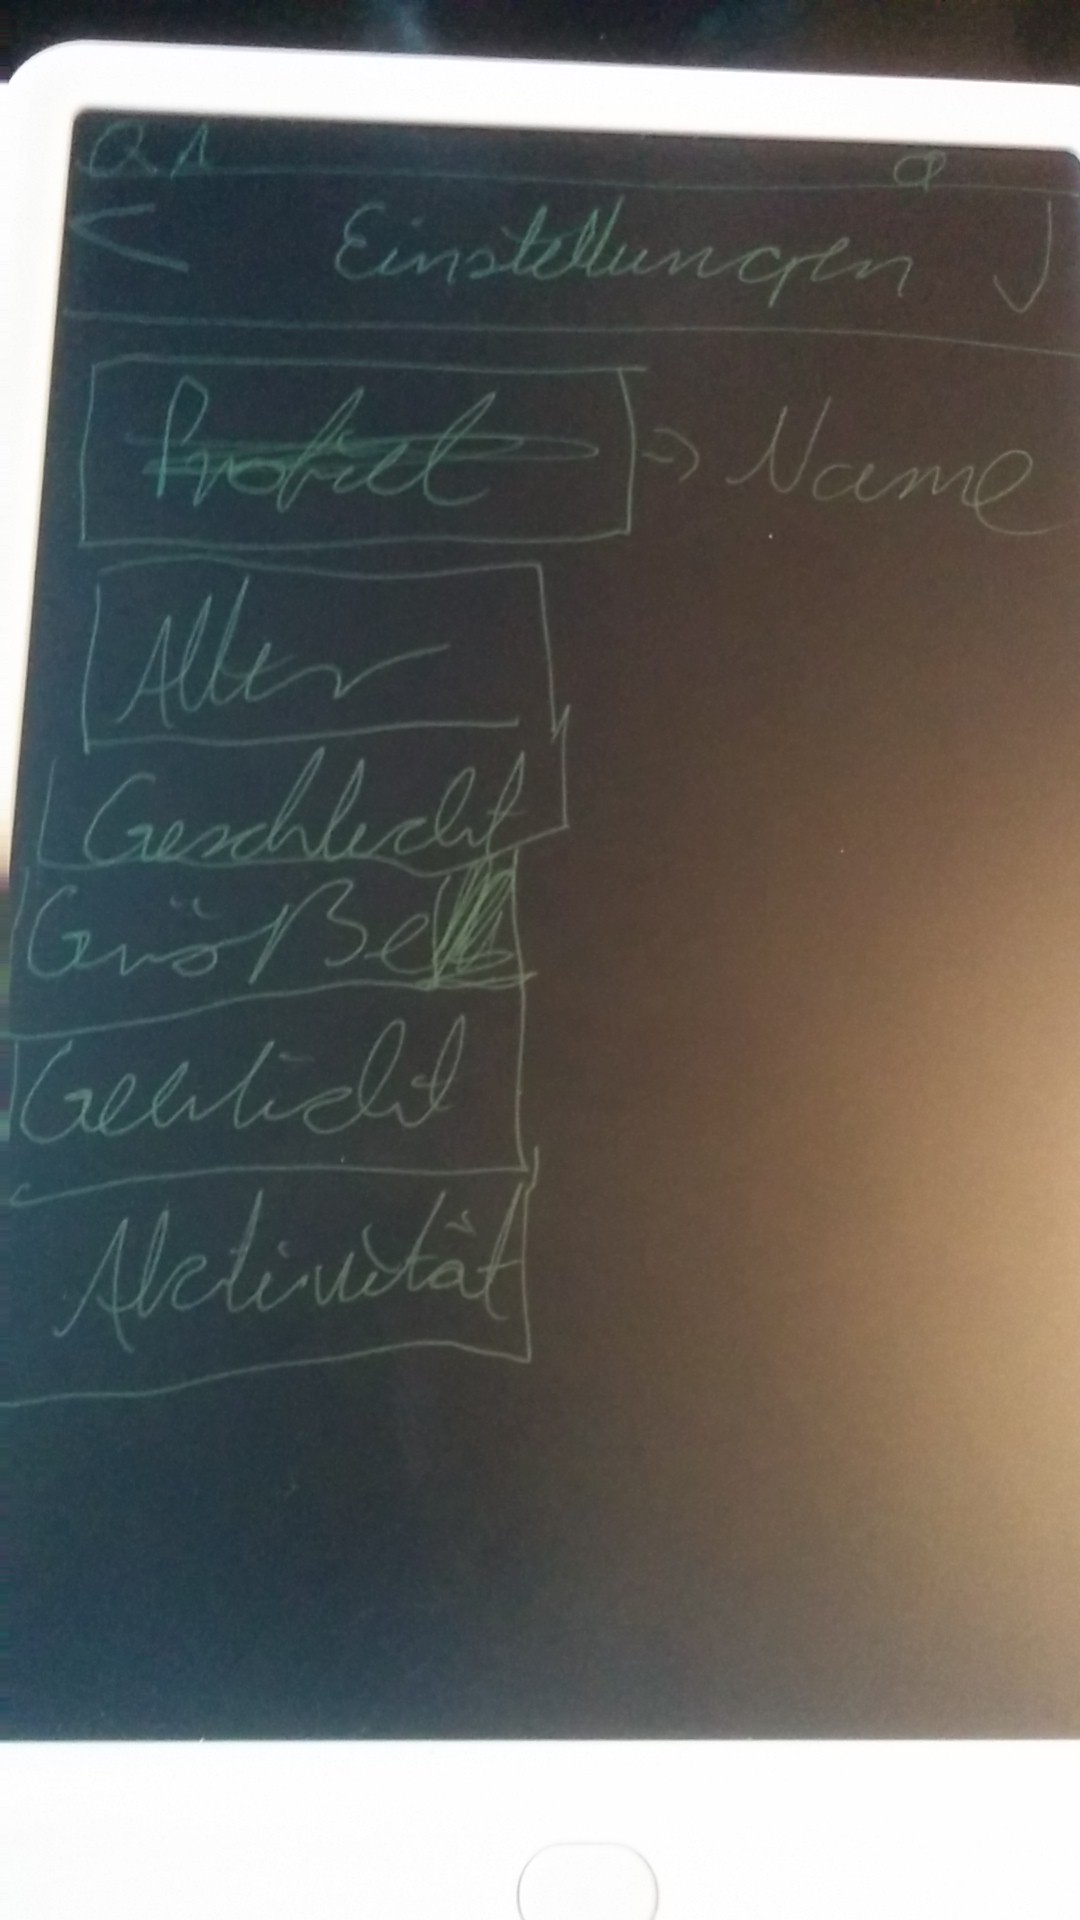 Einstellungen
Profiel => Name
Alter
Geschlecht
Größe
Gewicht
Aktivität